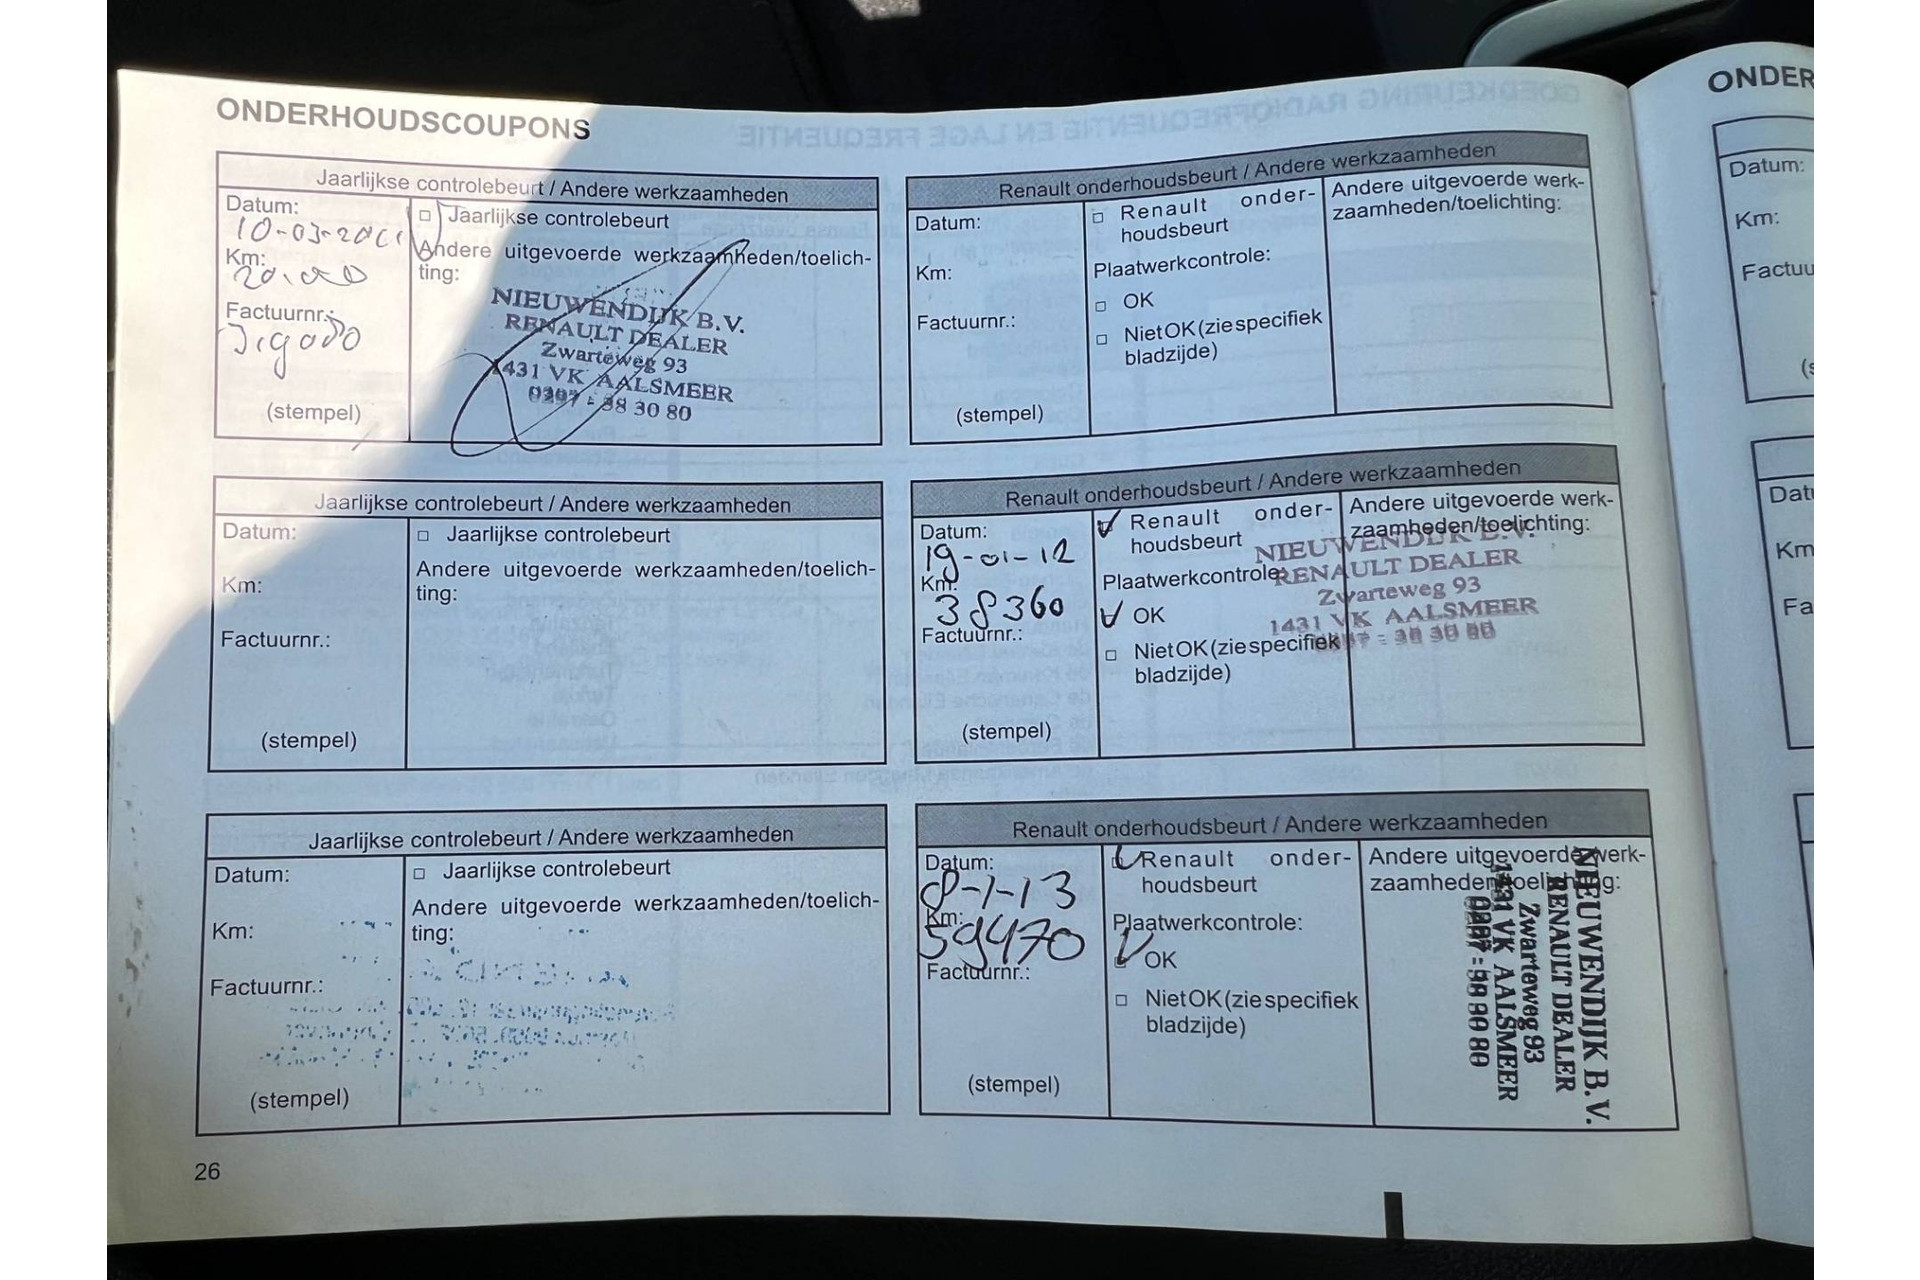 ONDERHOUDSCOUPONS
Jaarlijkse controlebeurt / Andere werkzaamheden
Datum:
10-03-2011
Km:
20.000
Factuurnr.:
(stempel)
Jaarlijkse controlebeurt
Andere uitgevoerde werkzaamheden/toelich-
ting:
NIEUWENDIJK B.V.
RENAULT DEALER
Zwarteweg 93
1431 VK AALSMEER
0297 - 38 30 80
Renault onderhoudsbeurt / Andere werkzaamheden
Datum:
Km:
Factuurnr.:
(stempel)
Renault onder-
houdsbeurt
Plaatwerkcontrole:
OK
Niet OK (zie specifiek
bladzijde)
Andere uitgevoerde werk-
zaamheden/toelichting:
Jaarlijkse controlebeurt / Andere werkzaamheden
Datum:
Km:
Factuurnr.:
(stempel)
Jaarlijkse controlebeurt
Andere uitgevoerde werkzaamheden/toelich-
ting:
Renault onderhoudsbeurt / Andere werkzaamheden
Datum:
19-01-12
Km:
38360
Factuurnr.:
(stempel)
Renault onder-
houdsbeurt
Plaatwerkcontrole:
OK
Niet OK (zie specifiek
bladzijde)
Andere uitgevoerde werk-
zaamheden/toelichting:
NIEUWENDIJK B.V.
RENAULT DEALER
Zwarteweg 93
1431 VK AALSMEER
0297 - 38 30 80
Jaarlijkse controlebeurt / Andere werkzaamheden
Datum:
Km:
Factuurnr.:
(stempel)
Jaarlijkse controlebeurt
Andere uitgevoerde werkzaamheden/toelich-
ting:
Renault onderhoudsbeurt / Andere werkzaamheden
Datum:
8-1-13
Km:
59470
Factuurnr.:
(stempel)
Renault onder-
houdsbeurt
Plaatwerkcontrole:
OK
Niet OK (zie specifiek
bladzijde)
Andere uitgevoerde werk-
zaamheden/toelichting:
NIEUWENDIJK B.V.
RENAULT DEALER
Zwarteweg 93
1431 VK AALSMEER
0297 - 38 30 80
26
ONDER
Datum:
Km:
Factuu
(s
Dat
Km
Fa